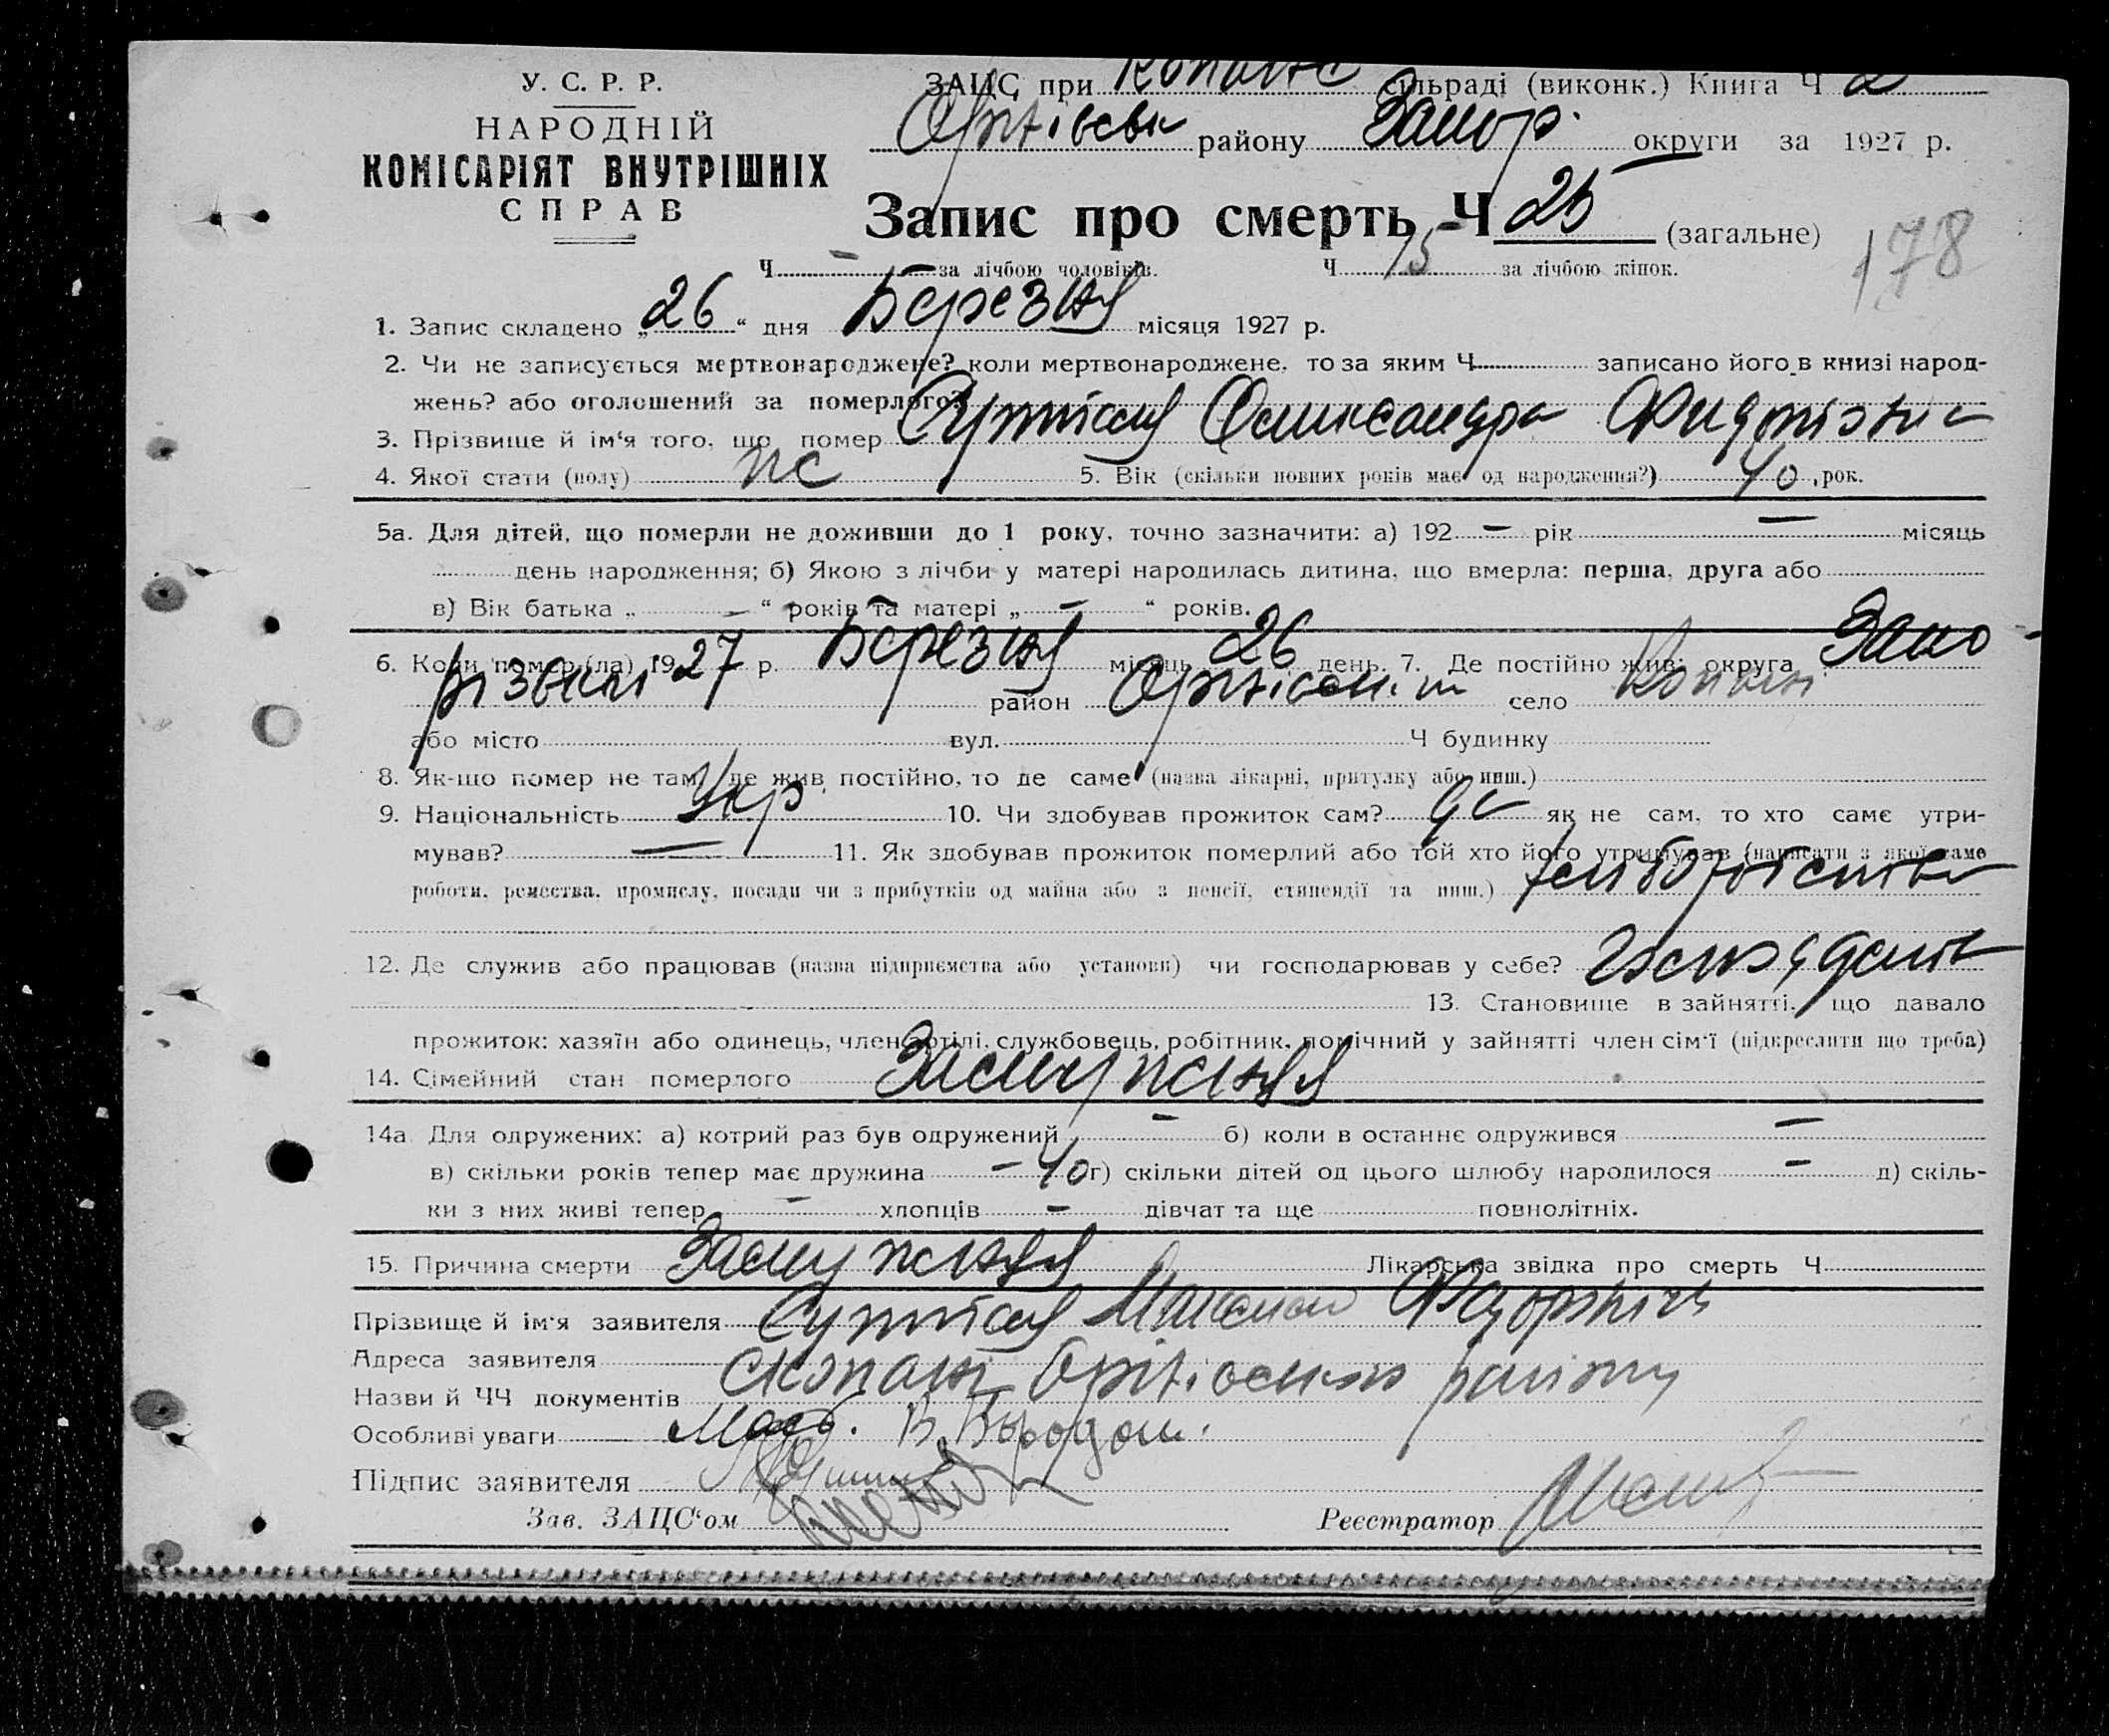 У. С. Р. Р.
НАРОДНІЙ
КОМІСАРІЯТ ВНУТРІШНІХ
СПРАВ
ЗАЦС при сільраді (виконк.) Книга Ч 2
району Запор. округи за 1927 р.
Запис про смерть Ч 25 (загальне)
178
Ч. – за лічбою чоловіків. Ч 15 за лічбою жінок.
1. Запис складено „ 26 “ дня Березня місяця 1927 р.
2. Чи не записується мертвонароджене? коли мертвонароджене, то за яким Ч записано його в книзі народ-
жень? або оголошений за померлого?
3. Прізвище й ім‘я того, що помер Олександра
4. Якої стати (полу) жс 5. Вік (скільки повних років має од народження?) 40 рок.
5а. Для дітей, що померли не доживши до 1 року, точно зазначити: а) 192 – рік – місяць
день народження; б) Якою з лічби у матері народилась дитина, що вмерла: перша, друга або
в) Вік батька „ – “ років та матері „ – “ років.
6. Коли помер (ла) 1927 р. Березня місяць 26 день. 7. Де постійно жив: округа Запо-
різька район село Копані
або місто вул. Ч будинку
8. Як-що помер не там, де жив постійно, то де саме (назва лікарні, притулку або инш.)
9. Національність Укр. 10. Чи здобував прожиток сам? як не сам, то хто саме утри-
мував? – 11. Як здобував прожиток померлий або той хто його утримував (написати з якої саме
роботи, ремества, промислу, посади чи з прибутків од майна або з пенсії, стипендії та инш.)
12. Де служив або працював (назва підприємства або установи) чи господарював у себе?
13. Становище в зайнятті, що давало
прожиток: хазяїн або одинець, член артілі, службовець, робітник, помічний у зайнятті член сім‘ї (підкреслити що треба)
14. Сімейний стан померлого Замужняя
14а Для одружених: а) котрий раз був одружений – б) коли в останнє одружився –
в) скільки років тепер має дружина – 40 г) скільки дітей од цього шлюбу народилося – д) скіль-
ки з них живі тепер – хлопців – дівчат та ще повнолітніх.
15. Причина смерти Замужняя Лікарська звідка про смерть Ч
Прізвище й ім‘я заявителя
Адреса заявителя с Копані району
Назви й ЧЧ документів
Особливі уваги
Підпис заявителя
Зав. ЗАЦС‘ом Реєстратор